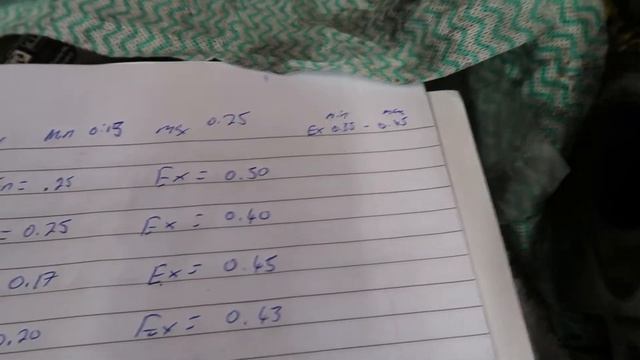 min max
mn 0.15 mx 0.25 Ex 0.35 - 0.45
n = .25 Ex = 0.50
= 0.25 Ex = 0.40
0.17 Ex = 0.45
0.20 Ex = 0.43